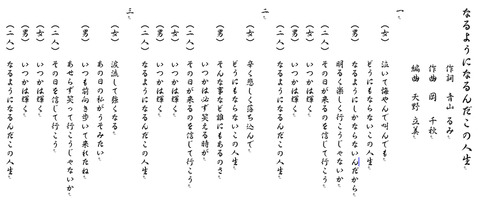 なるようになるんだこの人生
作詞 青山 るみ
作曲 岡 千秋
編曲 天野 立美
一、
(女) 泣いて悔やんで叫んでも
どうにもならないこの人生
(男) なるようにしかならないんだから
明るく楽しく行こうじゃないか
(二人) その日が来るのを信じて行こう
(女) いつかは輝く
(男) いつかは輝く
(二人) なるようになるんだこの人生
二、
(女) 辛く悲しく落ち込んで
どうにもならないこの人生
(男) そんな事など誰にもあるのさ
いつかは必ず笑える時が
(二人) その日が来るのを信じて行こう
(女) いつかは輝く
(男) いつかは輝く
(二人) なるようになるんだこの人生
三、
(女) 涙流して強くなる
あの日の私がうそみたい
(男) いつも前向き歩いて来れたね
あせらず笑って行こうじゃないか
(二人) その日を信じて行こう
(女) いつかは輝く
(男) いつかは輝く
(二人) なるようになるんだこの人生